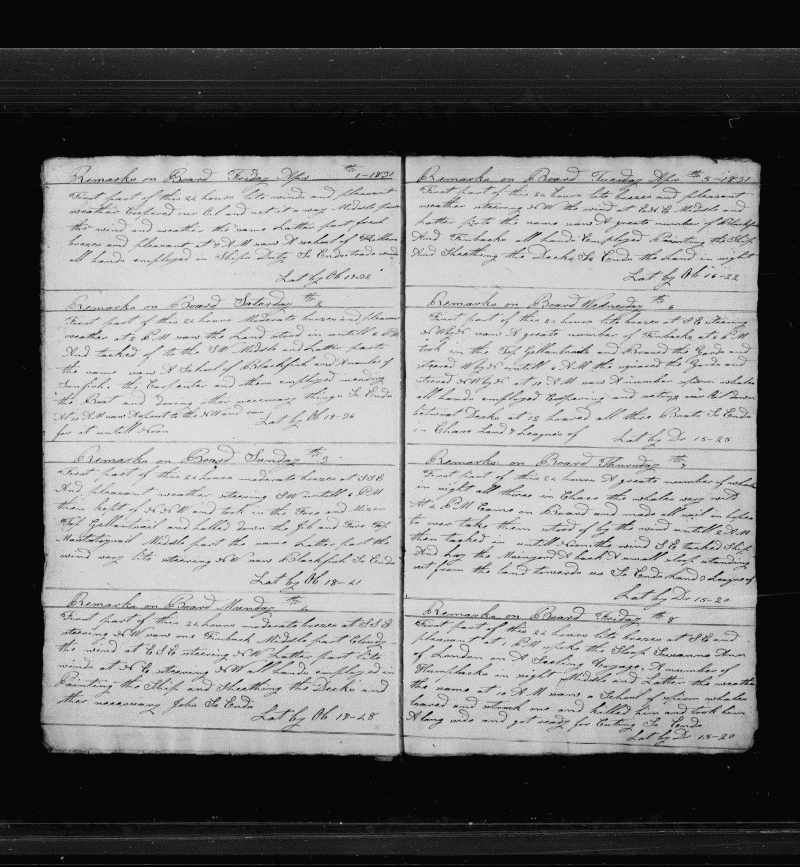 Remarks on Board Friday Apr th 1-1831
First part of this 24 hours lite winds and pleasant
weather Coopered our Oil and set it a way Middle part
the wind and weather the same Latter part fresh
brezes and pleasant at 7 AM saw A school of
all hands employed in Ships Duty So Ends trade winds
Lat by Ob 19-32
Remarks on Board Saturday th 2
First part of this 24 hours Moderate brezes and pleasant
weather at 2 PM saw the Land stood in untill 6 PM
And tacked of to the SW Middle and Latter parts
the same saw A School of Blackfish and A number of
Sunfish the Carpenter and them employed mending
the Boat and doeing other necessary things So Ends
At 10 AM saw A spout to the NW and run
for it untill Noon
Lat by Ob 19-26
Remarks on Board Sunday th 3
First part of this 24 hours moderate brezes at SSE
And pleasant weather steering SW untill 6 PM
then kept of NNW and took in the Fore and Mizen
Top Gallantsail and halled down the Gib and Fore Top
Maststaysail Middle part the same Latter part the
wind very lite steering NW saw Blackfish So Ends
Lat by Ob 18-41
Remarks on Board Munday th 4
First part of this 24 hours moderate brezes at SSE
steering NW saw one Finback Middle part Cloudy
the wind at ESE steering NW Latter part lite
winds at NE steering NW all hands employed in
Painting the Ship and Sheathing the Decks and
other necessary Jobs So Ends
Lat by Ob 17-48
Remarks on Board Tuesday Apr th 5-1831
First part of this 24 hours lite brezes and pleasant
weather steering NW the wind at ENE Middle and
Latter parts the same saw A greate number of Blackfish
And Finbacks all hands Employed Painting the Ship
And Sheathing the Decks So Ends the Land in sight
Lat by Ob 16-22
Remarks on Board Wednesday th 6
First part of this 24 hours lite brezes at SE steering
NWbyN saw A greate number of Finbacks at 6 PM
took in the Top Gallantsails and Braced the Yards and
steared WbyN untill 6 AM the squared the Yards and
steared NWbyN at 10 AM saw A number spirm whales
all hands employed Coopering and setting our Oil down
betwixt Decks at 12 loared all three Boats So Ends
in Chase Land 7 Leagues of
Lat by Dr 15-25
Remarks on Board Thursday th 7
First part of this 24 hours A greate number of whales
in sight all three in Chase the whales very wild
At 2 PM Came on Board and made all sail in hopes
to over take them stood of by the wind untill 2 AM
then tacked in untill Noon the wind SE tacked Ship
And hay the Mainyard A back A small sloop standing
out from the land towards us So Ends Land 3 Leagues of
Lat by Dr 15-20
Remarks on Board Friday th 8
First part of this 24 hours lite brezes at SE and
pleasant at 1 PM spoke the Sloop Susanna Ann
of London on A Sealing Voyage A number of
Humpbacks in sight Middle and Latter the weather
the same at 10 AM saw A School of spirm whales
loared and struck one and killed him and took him
Along side and got ready for Cuting So Ends
Lat by Dr 15-20